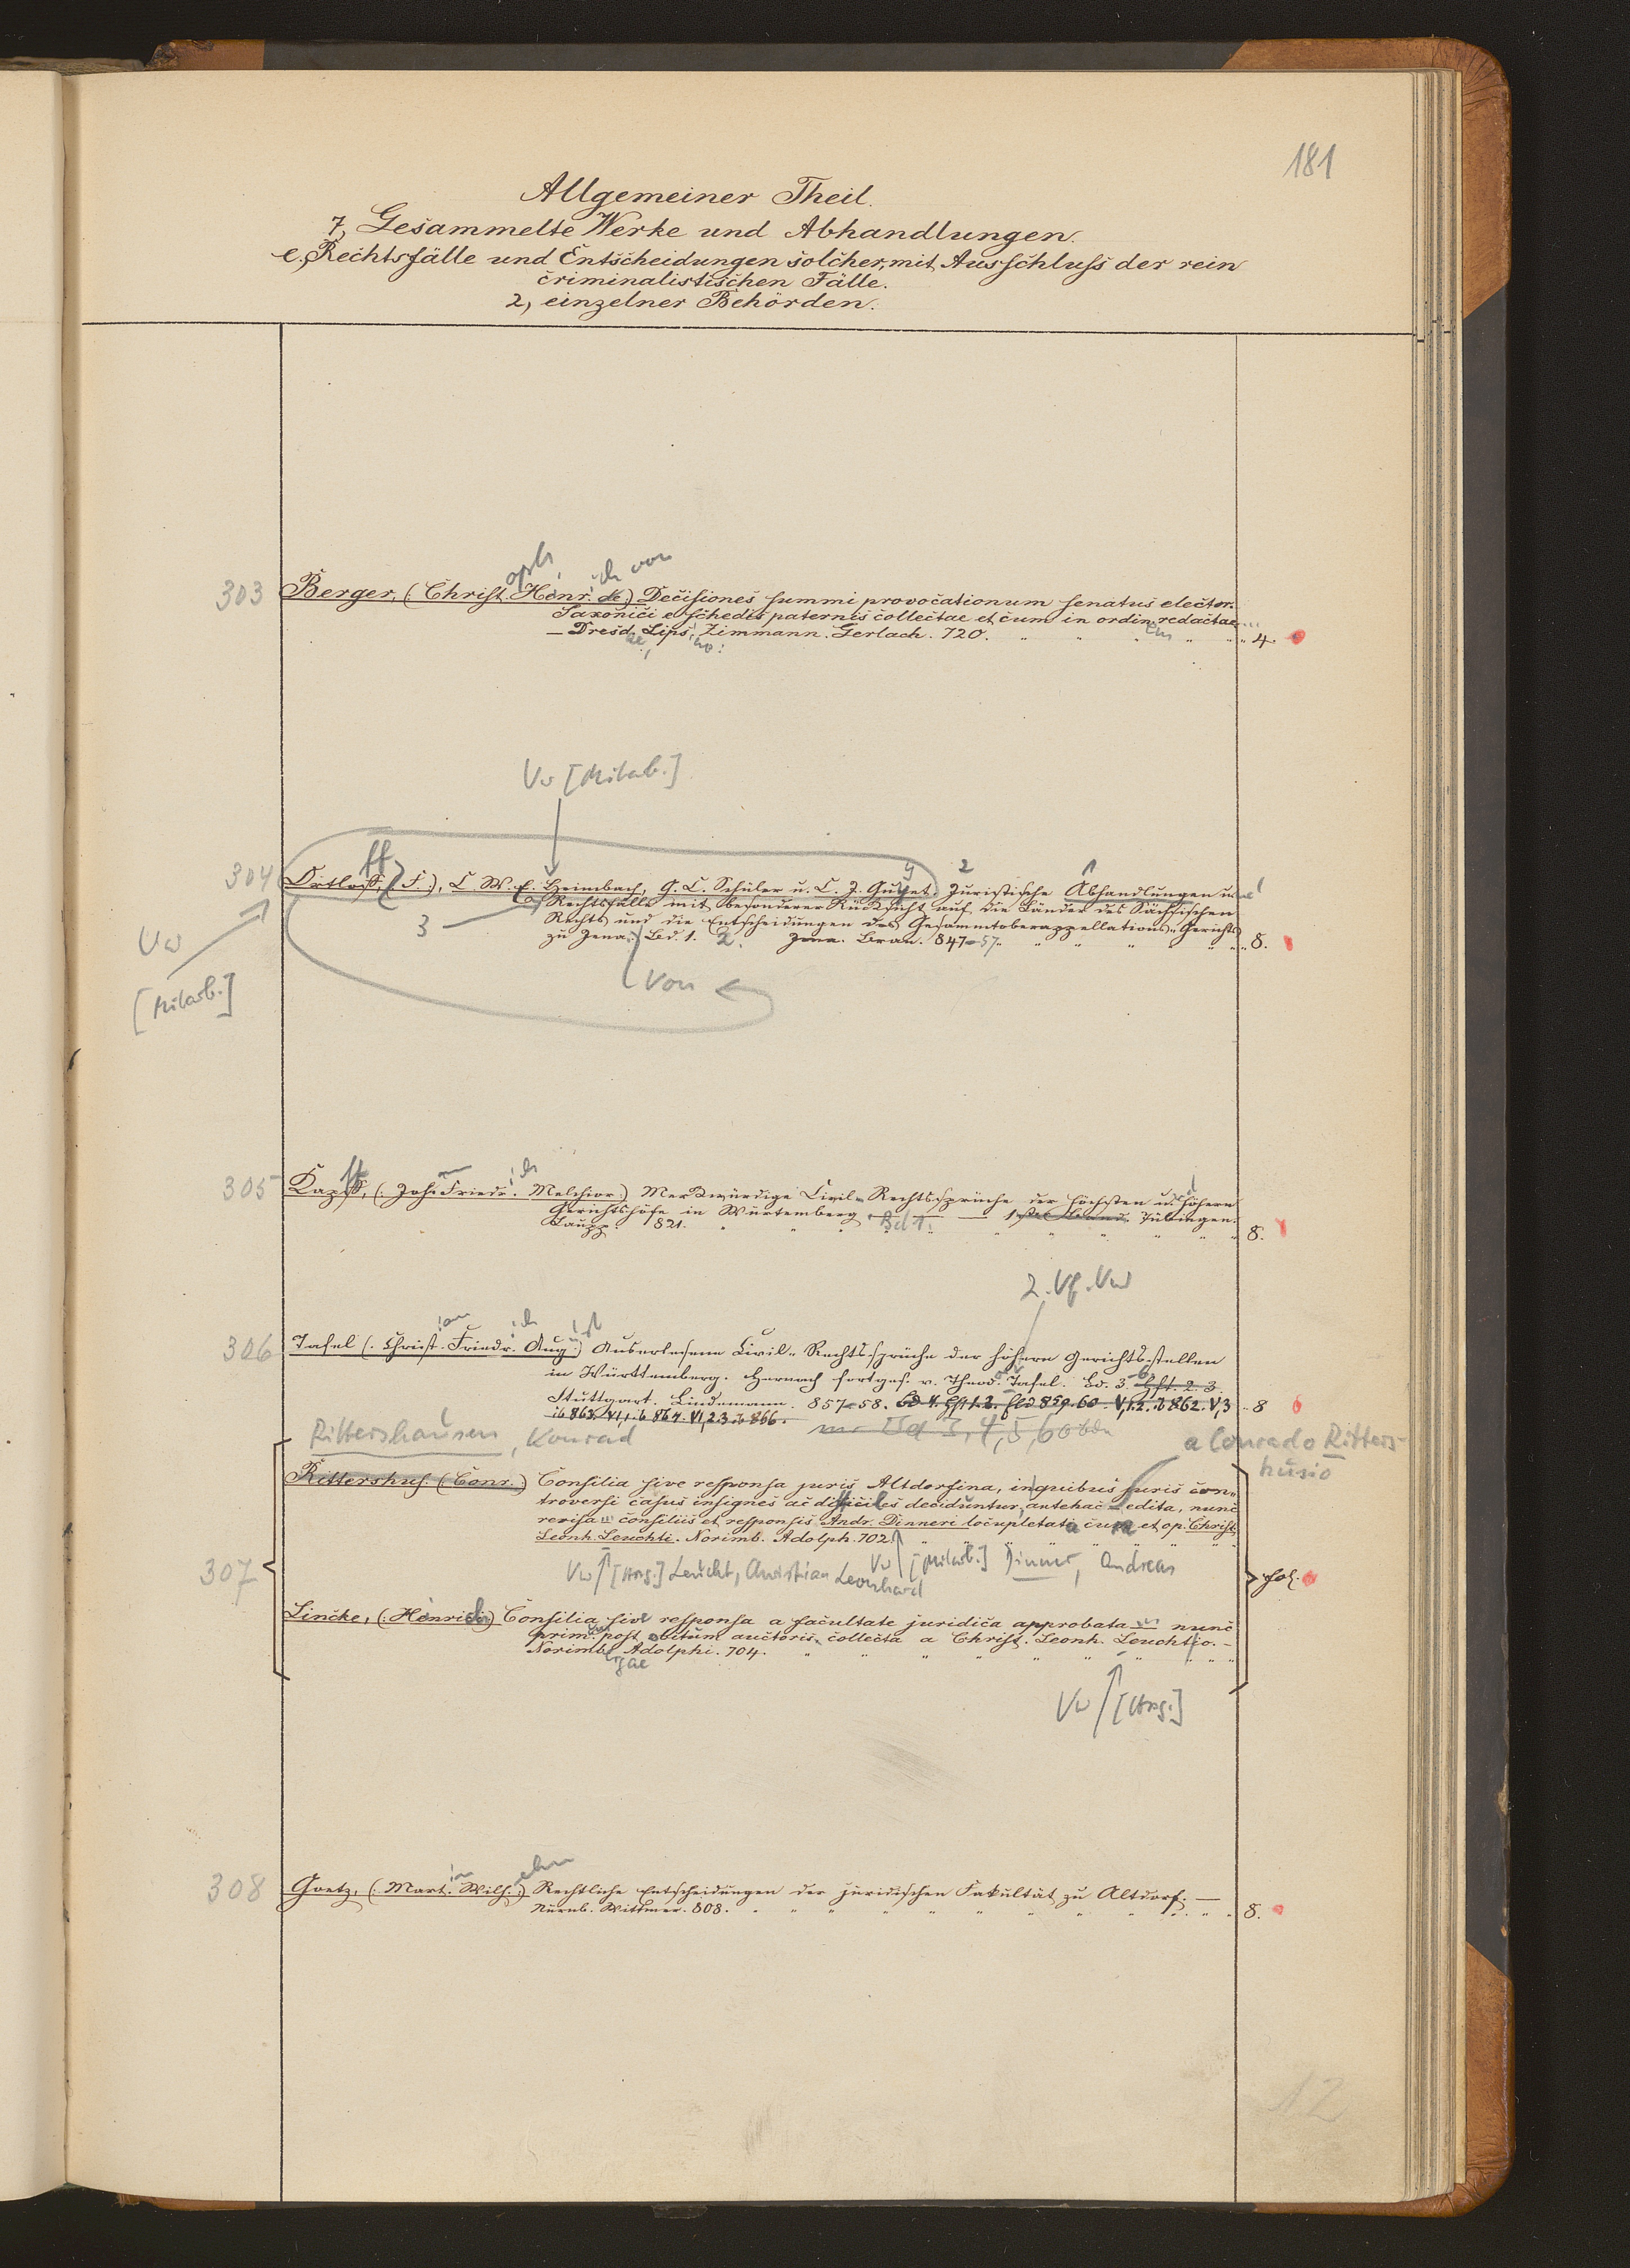 181
Allgemeiner Theil.
7, Gesammelte Werke und Abhandlungen.
e., Rechtsfälle und Entscheidungen solcher, mit Ausschluss der rein
criminalistischen Fälle.
2, einzelner Behörden.
oph ich von
303 Berger, (: Christ. Henr. de:) Decisiones summi provocationum senatus elector.
Saxonici e schedis paternis collectae et cum in ordin. redactae
— Dresd. Lips. Zimmann. Gerlach. 720. 4.
Vw [Mitarb.]
304 Ortloff, (F.), C. W. E. Heimbach, G. C. Schüler u. C. J. Guyet. Juristische Abhandlungen u.
Rechtsfälle mit besonderer Rücksicht auf die Länder des Sächsischen
3 Rechts und die Entscheidungen des Gesammtoberappellations-Gerichts
zu Jena. Bd. 1. 2. Jena. Bran. 847-57. 8.
Vw
[Mitarb.]
von
305 Kapff, (: Joh. Friedr. Melchior:) Merkwürdige Civil-Rechtssprüche der höchsten u. höhern
Gerichtshöfe in Würtemberg. Bd 1. — 1ster Band. Tübingen.
Laupp. 821. 8.
2. Vf. Vw
306 Tafel (: Christ. Friedr. Aug:) Auserlesene Civil-Rechtssprüche der höhern Gerichtsstellen
in Württemberg. Hernach fortges. v. Theod. Tafel. Bd. 3. Hft. 2. 3.
Stuttgart. Lindemann. 857-58. Bd 4. Hft 1. 2. 859. 60. V, 1. 2. ib 862. V, 3 8
ib 863. VI, 1. ib 864. VI, 2. 3. ib 866.
Rittershausen, Konrad
a Conrado Ritters-
husio
Rittershus. (Conr.) Consilia sive responsa juris Altdorfina, in quibus juris con-
troversi casus insignes ac difficiles deciduntur, antehac edita, nunc
revisa consiliis et responsis Andr. Dinneri locupletata cura et op. Christ.
Leonh. Leuchti. Norimb. Adolph. 702.
307 Vw [Hrsg.] Leucht, Christian Leonhard Vw [Mitarb.] Dinner, Andreas fol.
Lincke, (: Henrici:) Consilia sive responsa a facultate juridica approbata nunc
prim. post obitum auctoris collecta a Christ. Leonh. Leuchtio. —
Norimb. Adolphi. 704.
Vw [Hrsg.]
308 Goetz, (: Mart. Wilh.:) Rechtliche Entscheidungen der juridischen Fakultät zu Altdorf. —
Nürnb. Wittwer. 808. 8.
12